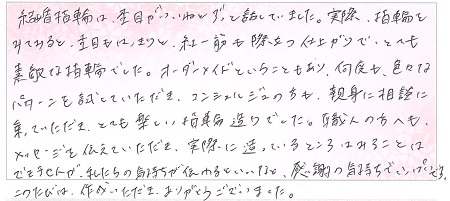 結婚指輪は、杢目がいいねとずっと話していました。実際、指輪を
みてみると、杢目もはっきりと、紅一筋も際立つ仕上がりで、とても
素敵な指輪でした。オーダーメイドということもあり、何度も、色々な
パターンを試していただき、コンシェルジュの方も、親身に相談に
乗っていただき、とても楽しい指輪造りでした。職人の方へも、
メッセージを伝えていただき、実際に造っているところはみることは
できませんが、私たちの気持ちが伝わるといいなと、感謝の気持ちでいっぱいです。
このたびは、作成いただき、ありがとうございました。